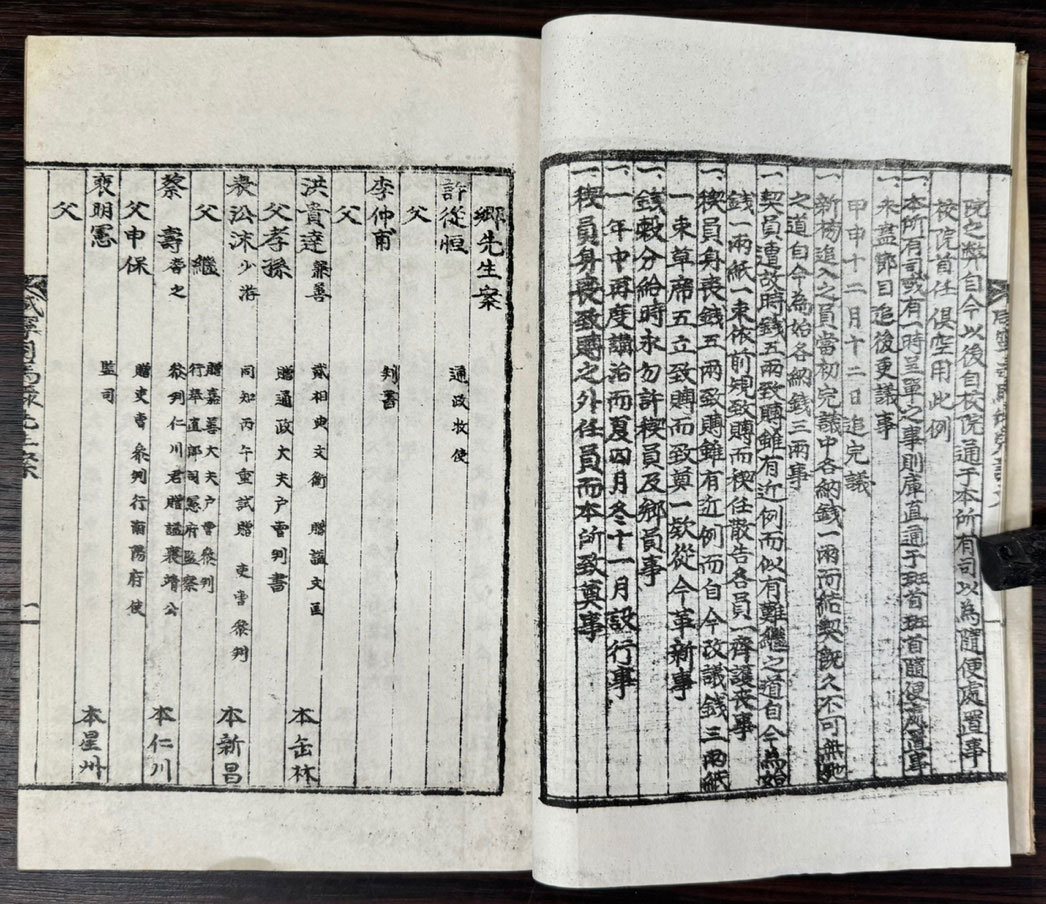 院之弊自今以後自校院通于本所有司以為隨便處置事
校院首任俱空用此例
一、本所有司或有一時呈單之事則庫直通于班首班首隨便處置事
一、未盡節目追後更議事
甲申十二月十二日追完議
一、新榜追入之員當初完議中各納錢一兩而結契既久不可無
之道自今為始各納錢三兩事
一、契員遭故時錢五兩致賻雖有近例而似有難繼之道自今為始
錢一兩紙一束依前規致賻而稧任散告各員一齊護喪事
一、稧員身喪錢五兩致賻雖有近例而自今改議錢三兩紙
一束草席五立致賻而致奠一欵從今革新事
一、錢穀分給時永勿許稧員及鄉員事
一、一年中再度講洽而夏四月冬十一月設行事
一、稧員身喪致賻之外任員而本所致奠事
鄉先生案
許從恒 通政牧使
父
李仲甫 判書
父
洪貴達 兼善 貳相典文衡 贈謚文匡 本缶林
父孝孫 贈通政大夫戶曹判書
表沿沫 少游 同知丙午重試贈 吏曹叅判 本新昌
父繼 贈嘉善大夫戶曹叅判
行奉直郎司憲府監察
蔡壽 耆之 叅判仁川君贈謚襄靖公 本仁川
父申保 贈吏曹叅判行南陽府使
裵明憲 監司 本星州
父